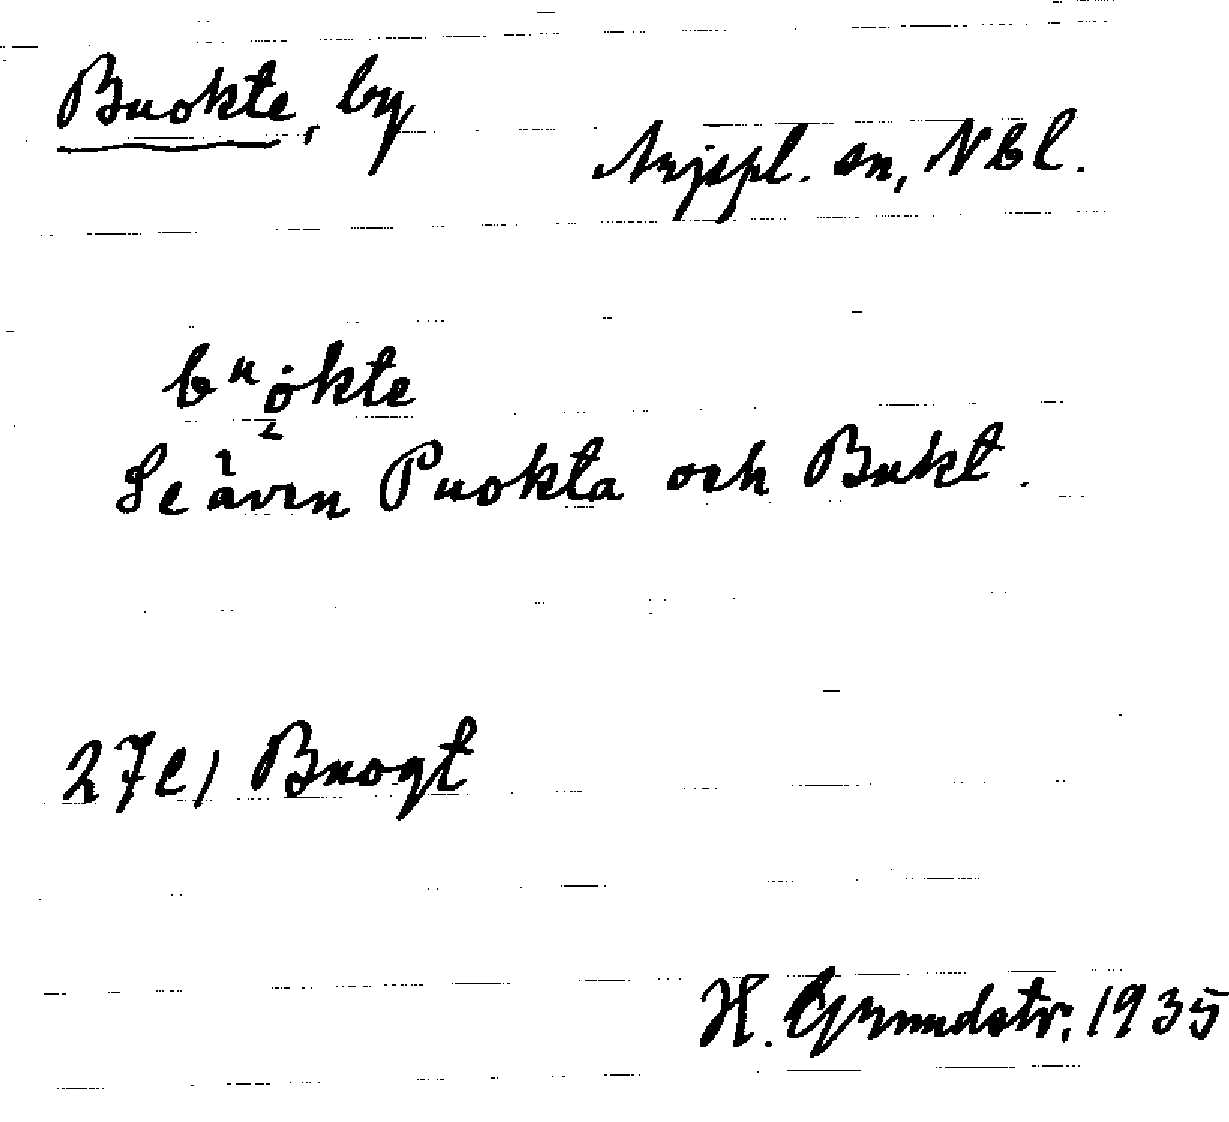 Buokte, by
Arjepl. sn, Nbl.
bᵘȯkte
Se även Puokta och Bukt.
27 e) Buogt
H. Grundstr. 1935